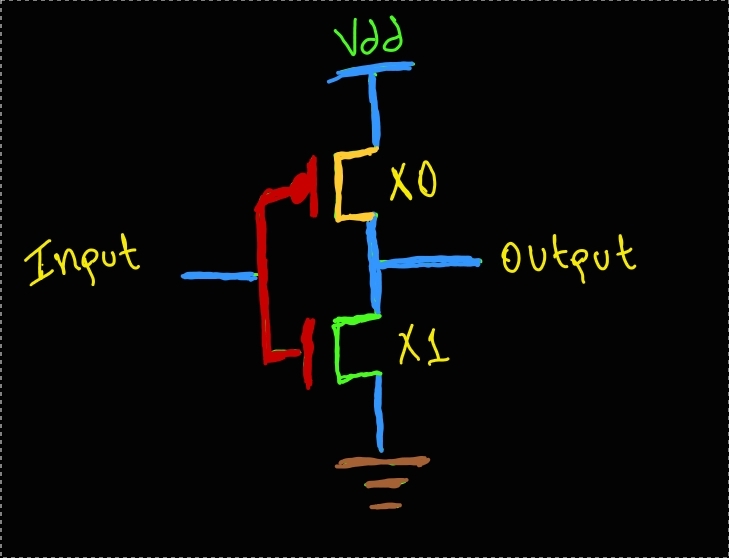 Vdd
X0
Input
Output
X1